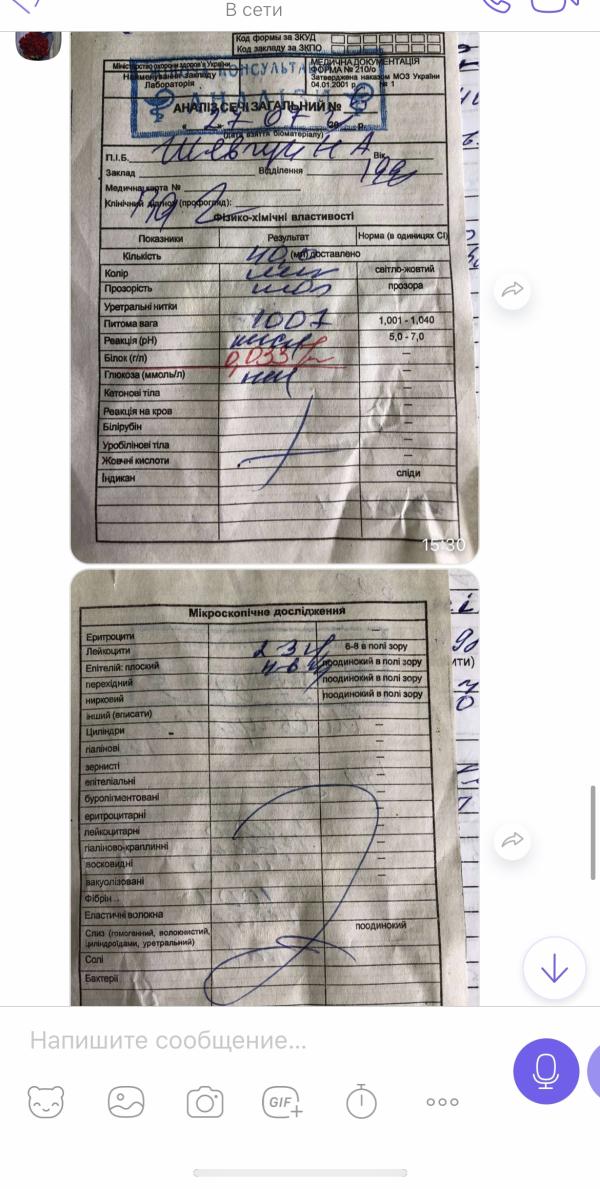 В сети
Код формы за ЗКУД
Код закладу за ЗКПО
Міністерство охорони здоров'я України
Найменування закладу
Лабораторія
МЕДИЧНА ДОКУМЕНТАЦІЯ
ФОРМА № 210/о
Затверджена наказом МОЗ України
04.01.2001 р. № 1
АНАЛІЗ СЕЧІ ЗАГАЛЬНИЙ №
27 07
(дата взяття біоматеріалу)
П.І.Б. Вік
Заклад Відділення
Медична карта №
Клінічний діагноз (профогляд):
Фізико-хімічні властивості
Показники Результат Норма (в одиницях СІ)
Кількість 40,0 (мл) доставлено
Колір світло-жовтий
Прозорість прозора
Уретральні нитки
Питома вага 1007 1,001 - 1,040
Реакція (рН) 5,0 - 7,0
Білок (г/л) 0,033 —
Глюкоза (ммоль/л) —
Кетонові тіла —
Реакція на кров —
Білірубін —
Уробілінові тіла —
Жовчні кислоти —
Індикан сліди
15:30
Мікроскопічне дослідження
Еритроцити —
Лейкоцити 2-3 6-8 в полі зору
Епітелій: плоский 4-6 поодинокий в полі зору
перехідний поодинокий в полі зору
нирковий поодинокий в полі зору
інший (вписати)
Циліндри - —
гіалінові —
зернисті —
епітеліальні —
буропігментовані —
еритроцитарні —
лейкоцитарні —
гіаліново-краплинні —
восковидні —
вакуолізовані —
Фібрин
Еластичні волокна
Слиз (гомогенний, волокнистий, поодинокий
циліндроїдами, уретральний)
Солі
Бактерії
Напишите сообщение...
GIF+